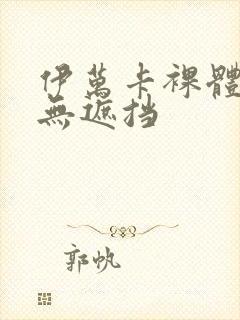 伊萬卡裸體
無遮挡
郭帆